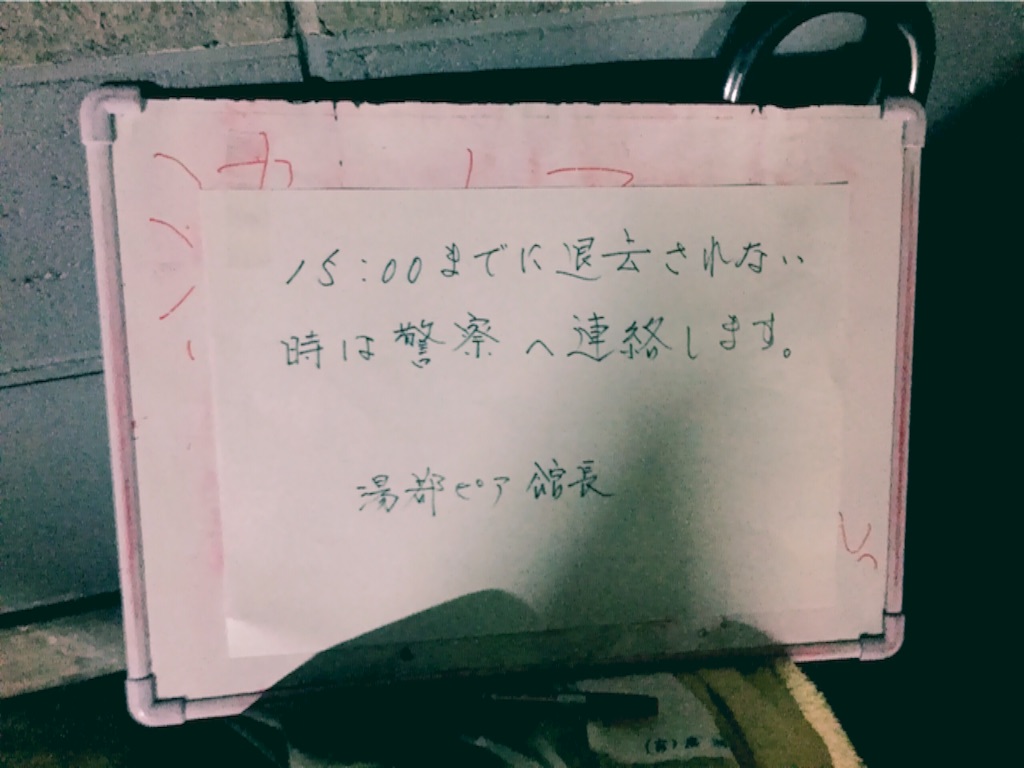 15:00までに退去されない
時は警察へ連絡します。
湯都ピア館長